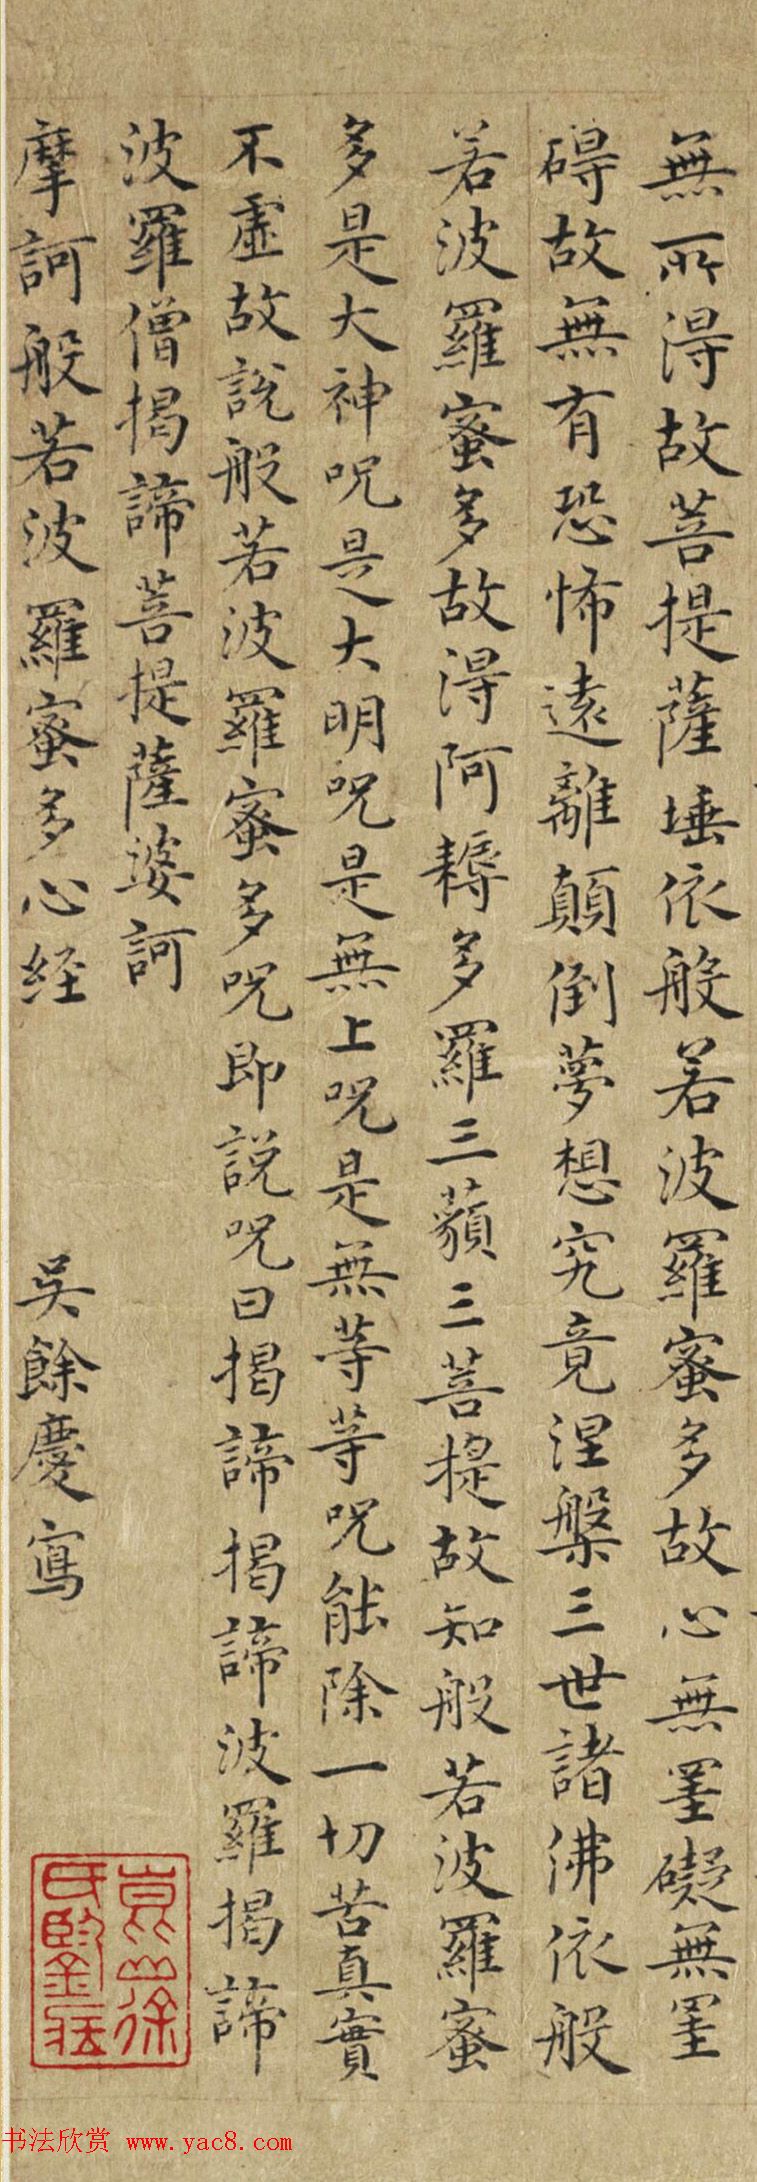 無所得故菩提薩埵依般若波羅蜜多故心無罣礙無罣
碍故無有恐怖遠離顛倒夢想究竟涅槃三世諸佛依般
若波羅蜜多故得阿耨多羅三藐三菩提故知般若波羅蜜
多是大神呪是大明呪是無上呪是無等等呪能除一切苦真實
不虛故說般若波羅蜜多呪即說呪曰揭諦揭諦波羅揭諦
波羅僧揭諦菩提薩婆訶
摩訶般若波羅蜜多心経 吳餘慶寫
书法欣赏 www.yac8.com